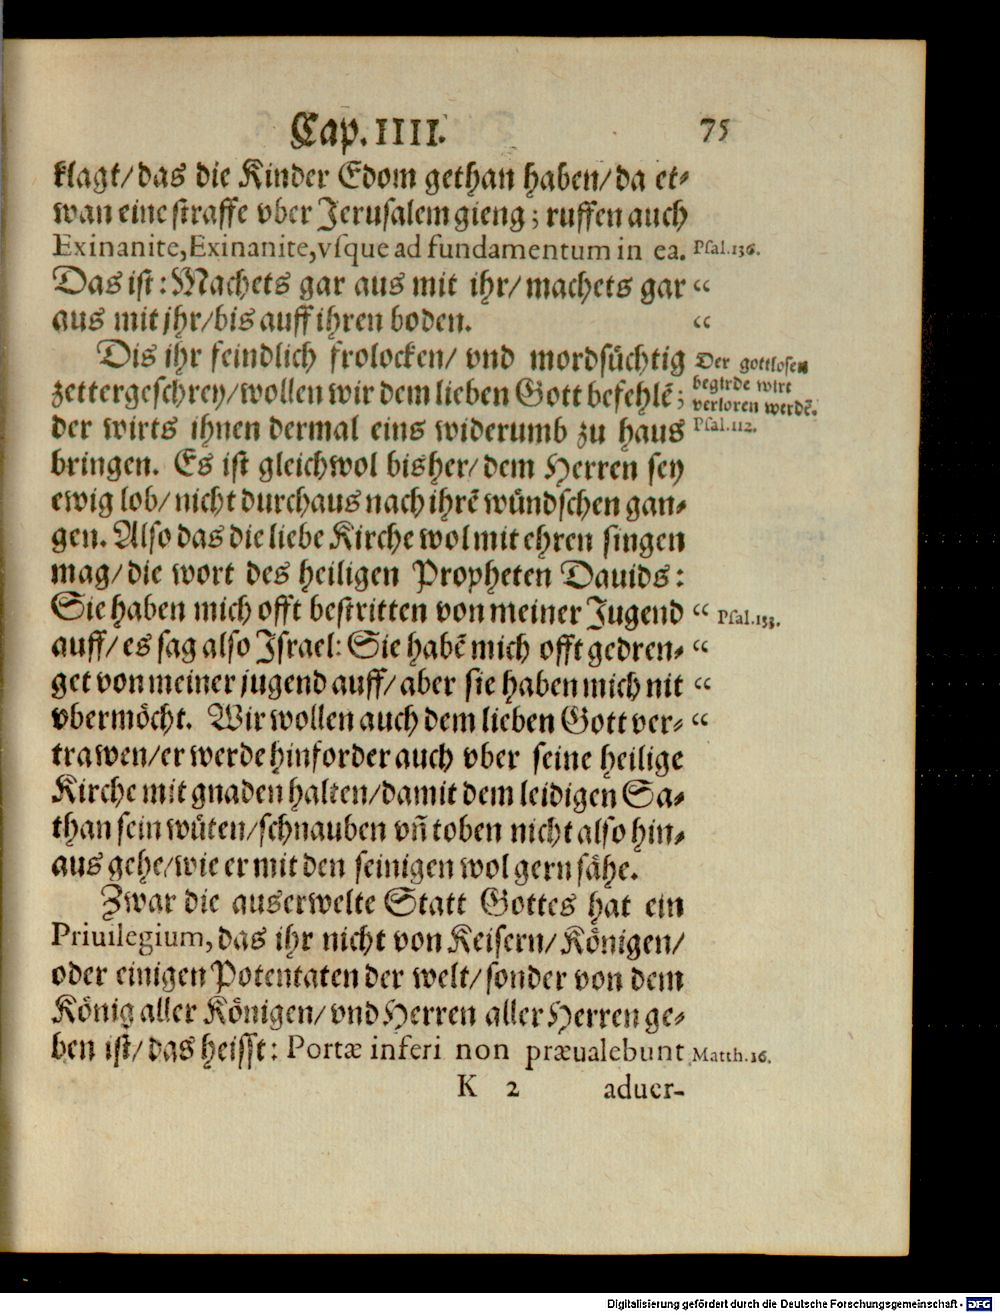 Cap. IIII. 75
klagt/das die Kinder Edom gethan haben/da et-
wan eine straffe vber Jerusalem gieng; ruffen auch
Exinanite, Exinanite, vsque ad fundamentum in ea. Psal.136.
Das ist: Machets gar aus mit ihr/machets gar “
aus mit jhr/bis auff ihren boden. “
Dis ihr feindlich frolocken/ vnd mordsüchtig
zettergeschrey/wollen wir dem lieben Gott befehlē;
der wirts ihnen dermal eins widerumb zu haus
Der gottlosen
begirde wirt
verloren werdē.
Psal.112.
bringen. Es ist gleichwol bisher/dem Herren sey
ewig lob/nicht durchaus nach ihrē wündschen gan-
gen. Also das die liebe Kirche wol mit ehren singen
mag/die wort des heiligen Propheten Dauids:
Sie haben mich offt bestritten von meiner Jugend “ Psal.133.
auff/es sag also Israel: Sie habē mich offt gedren- “
get von meiner jugend auff/aber sie haben mich nit “
vbermöcht. Wir wollen auch dem lieben Gott ver- “
trawen/er werde hinforder auch vber seine heilige
Kirche mit gnaden halten/damit dem leidigen Sa-
than sein wüten/schnauben vñ toben nicht also hin-
aus gehe/wie er mit den seinigen wol gern sähe.
Zwar die auserwelte Statt Gottes hat ein
Priuilegium, das ihr nicht von Keisern/Königen/
oder einigen Potentaten der welt/sonder von dem
König aller Königen/vnd Herren aller Herren ge-
ben ist/das heisst: Portæ inferi non præualebunt Matth.16.
K 2 aduer-
Digitalisierung gefördert durch die Deutsche Forschungsgemeinschaft - DFG